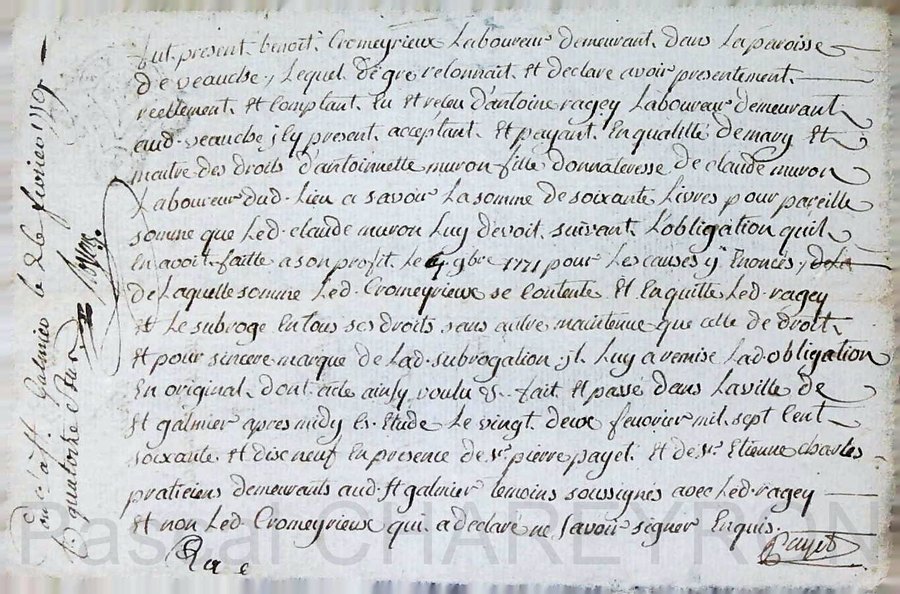 fut present benoit Cromeyrieux Laboureur demeurant dans La paroisse
de veauche, Lequel de gre reconnait et declare avoir presentement
reellement et comptant Eu et receu d'antoine ragey Laboureur demeurant
aud. veauche icy present acceptant et payant En qualitté de mary et
maitre des droits d'antoinette muron fille donnateresse de claude muron
Laboureur dud. Lieu a savoir La somme de soixante Livres pour pareille
somme que Led. claude muron Luy devoit suivant L'obligation quil
En avoit faitte a son profit Le 4 9bre 1771 pour Les causes y Enoncés,
de Laquelle somme Led. Cromeyrieux se contente et En quitte Led. ragey
et Le subroge En tous ses droits sans autre maintenue que celle de droit
et pour sincere marque de Lad. subrogation il Luy a remise Lad. obligation
En original, dont acte ainsy voulu & fait et passé dans La ville de
st galmier apres midy Es. Etude Le vingt deux fevrier mil sept cent
soixante et dix neuf En presence de sr. pierre payet et de sr. Etienne charles
praticiens demeurants aud. st galmier temoins soussignés avec Led. ragey
et non Led. Cromeyrieux qui a declaré ne savoir signer Enquis.
Payet
Con. à St Galmier le 26 fevrier 1779
R. quatorze sols
Pascal CHAREYRON